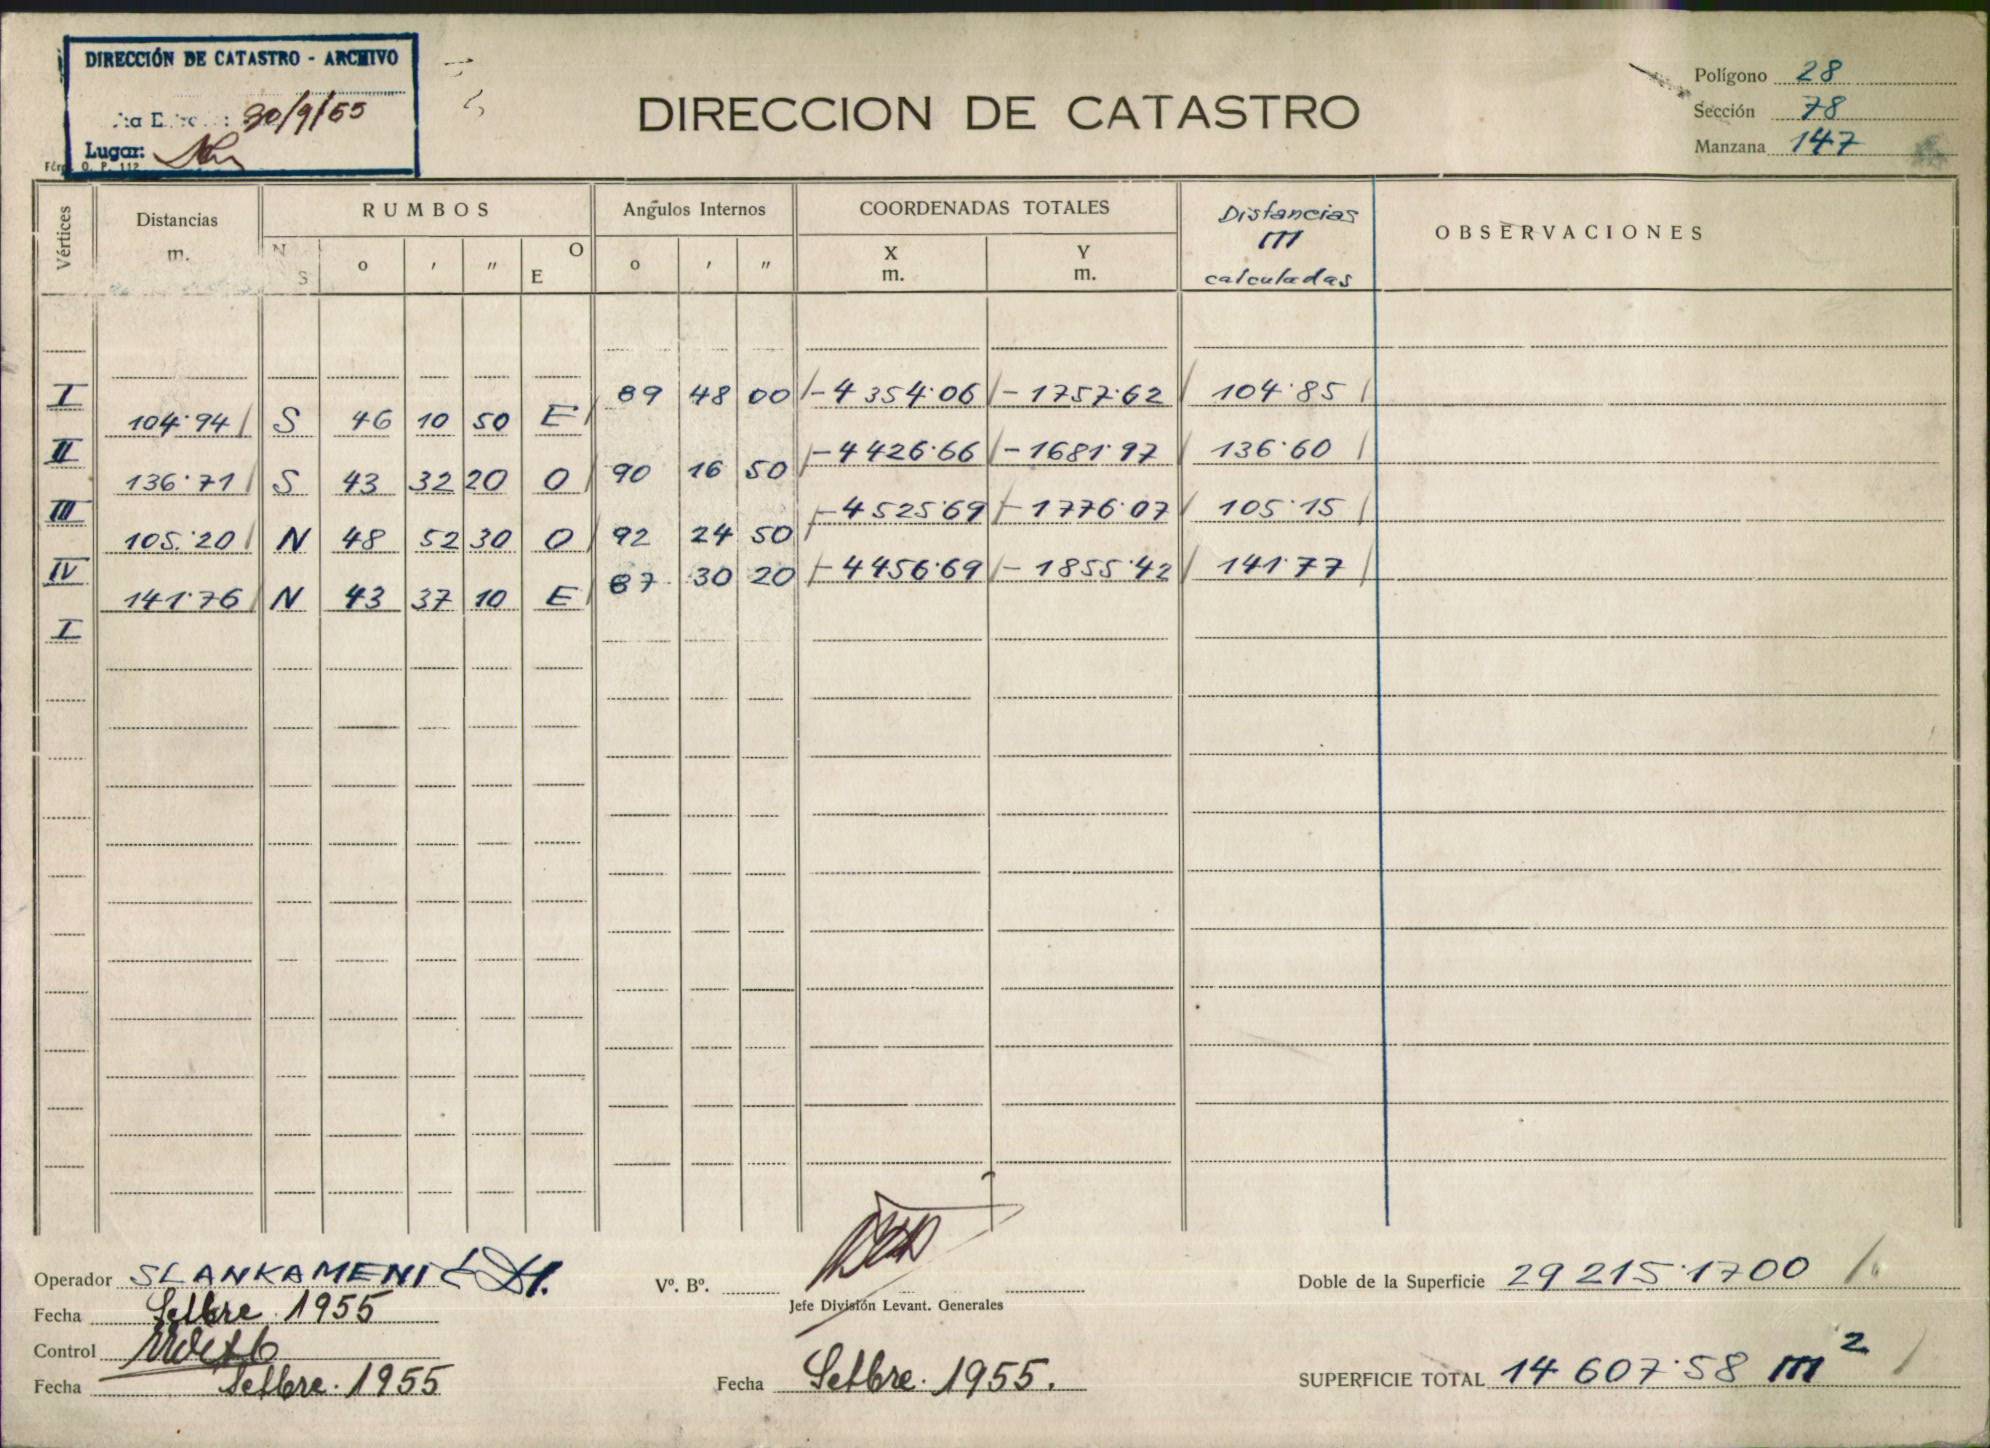 DIRECCIÓN DE CATASTRO - ARCHIVO
30/9/55
Lugar:
O. P. 112
DIRECCION DE CATASTRO
Polígono 28
Sección 78
Manzana 147
Vértices
Distancias
m.
RUMBOS
N
S
o
'
"
O
E
Angulos Internos
o
'
"
COORDENADAS TOTALES
X
m.
Y
m.
Distancias
m
calculadas
OBSERVACIONES
I 89 48 00 -4354.06 -1757.62 104.85
104.94 S 46 10 50 E
II 90 16 50 -4426.66 -1681.97 136.60
136.71 S 43 32 20 O
III 92 24 50 -4525.69 -1776.07 105.15
105.20 N 48 52 30 O
IV 87 30 20 -4456.69 -1855.42 141.77
141.76 N 43 37 10 E
I
Operador SLANKAMENIĆ
Fecha Setbre 1955
Control
Fecha Setbre. 1955
Vº. Bº.
Jefe División Levant. Generales
Fecha Setbre. 1955.
Doble de la Superficie 29215.1700
SUPERFICIE TOTAL 14607.58 m²